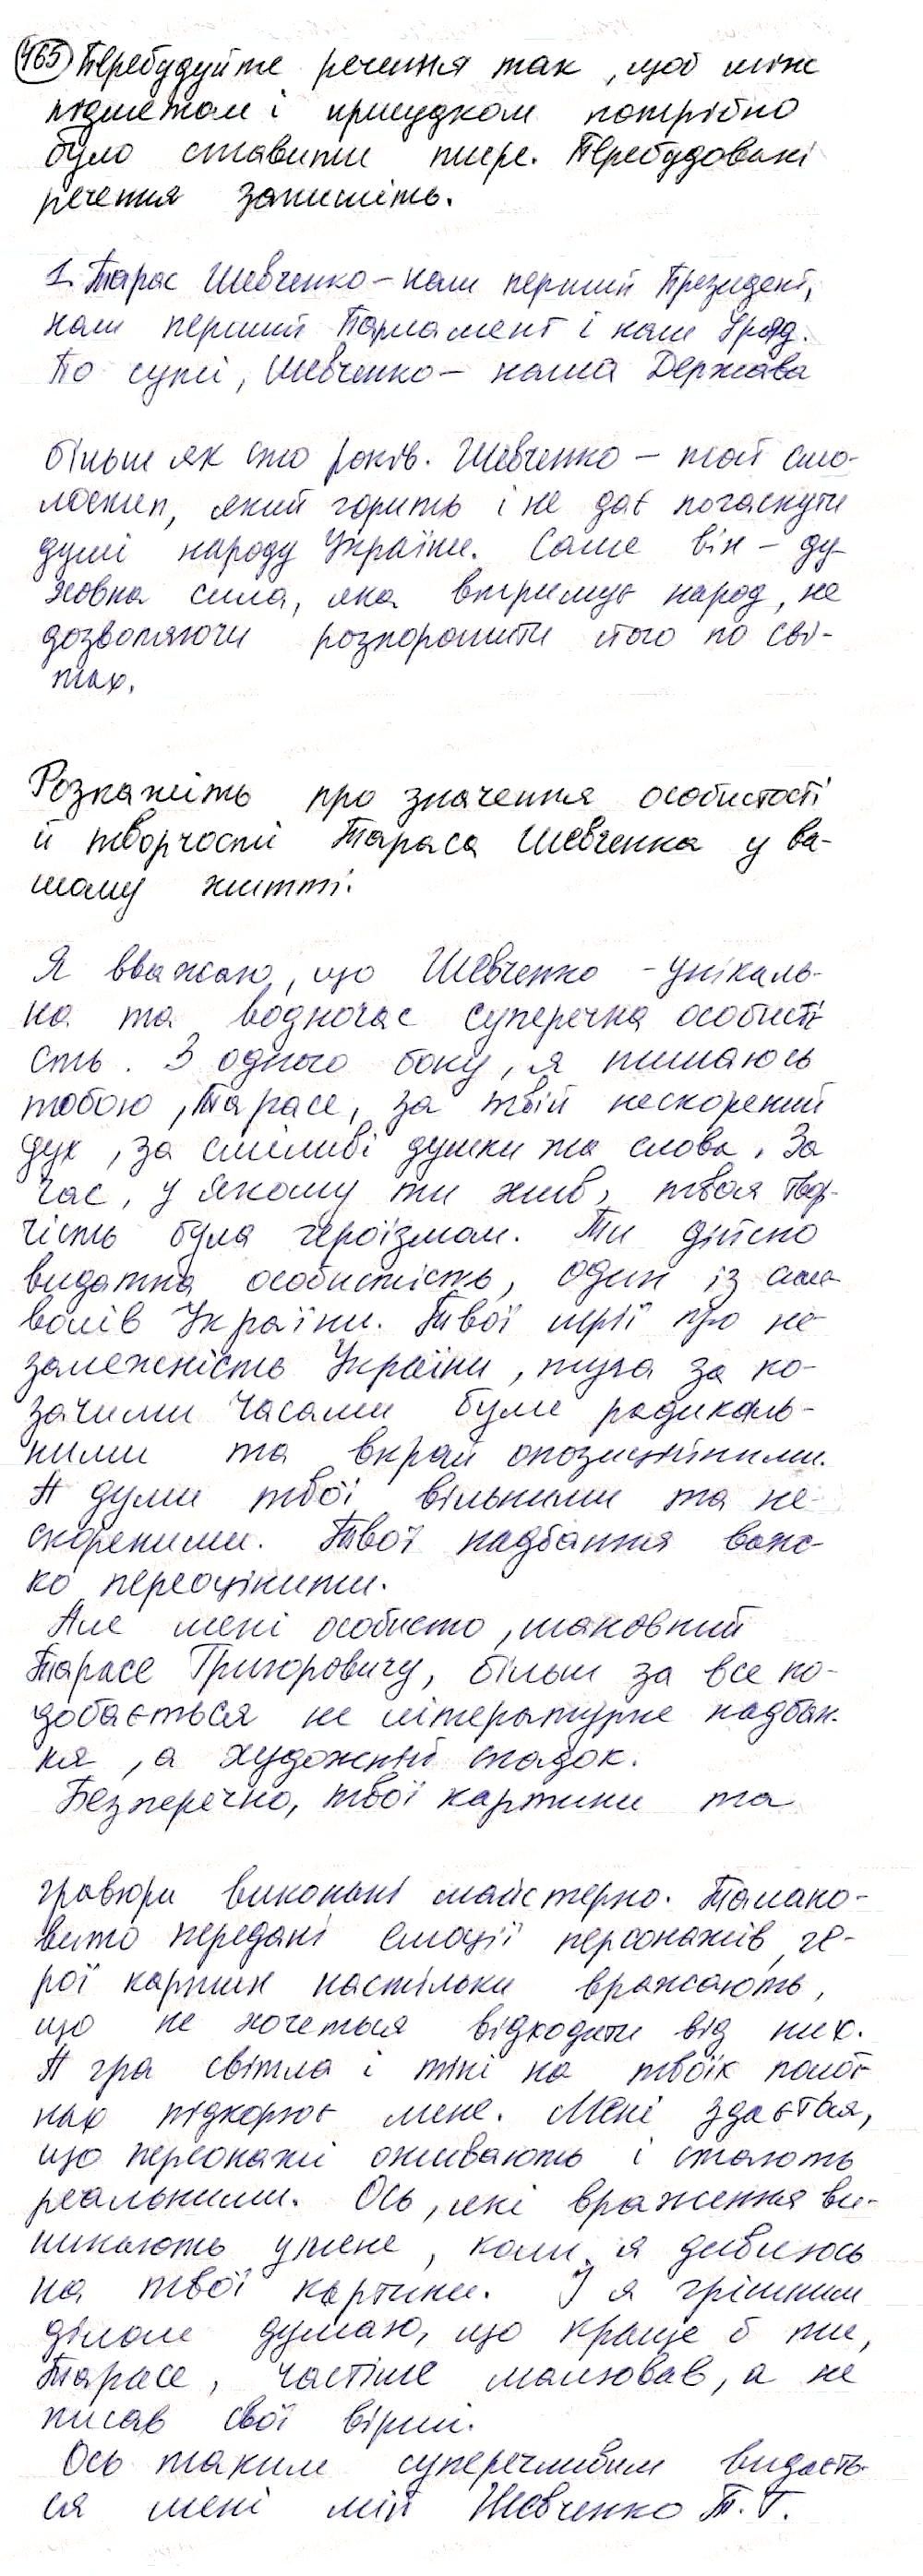 465 Перебудуйте речення так, щоб між
підметом і присудком потрібно
було ставити тире. Перебудовані
речення запишіть.
1. Тарас Шевченко – наш перший Президент,
наш перший Парламент і наш Уряд.
По суті, Шевченко – наша Держава
більш як сто років. Шевченко – той смо-
лоскип, який горить і не дає погаснути
душі народу України. Саме він – ду-
ховна сила, яка втримує народ, не
дозволяючи розпорошити його по сві-
тах.
Розкажіть про значення особистості
й творчості Тараса Шевченка у ва-
шому житті.
Я вважаю, що Шевченко - унікаль-
на та водночас суперечна особисті
сть. З одного боку, я пишаюсь
тобою, Тарасе, за твій нескорений
дух, за сміливі думки та слова. За
час, у якому ти жив, твоя твор-
чість була героїзмом. Ти дійсно
видатна особистість, один із сим-
волів України. Твої мрії про не-
залежність України, туга за ко-
зачими часами були радикаль-
ними та вкрай опозиційними.
А думи твої вільними та не-
скореними. Твої надбання важ-
ко переоцінити.
Але мені особисто, шановний
Тарасе Григоровичу, більш за все по-
добається не літературне надбан-
ня, а художній спадок.
Безперечно, твої картини та
гравюри виконані майстерно. Талано-
вито передані емоції персонажів, ге-
рої картин настільки вражають,
що не хочеться відходити від них.
А гра світла і тіні на твоїх полот-
нах підкорює мене. Мені здається,
що персонажі оживають і стають
реальними. Ось, які враження ви-
никають у мене, коли я дивлюсь
на твої картини. І я грішним
ділом думаю, що краще б ти,
Тарасе, частіше малював, а не
писав свої вірші.
Ось таким суперечливим видаєть-
ся мені мій Шевченко Т. Г.